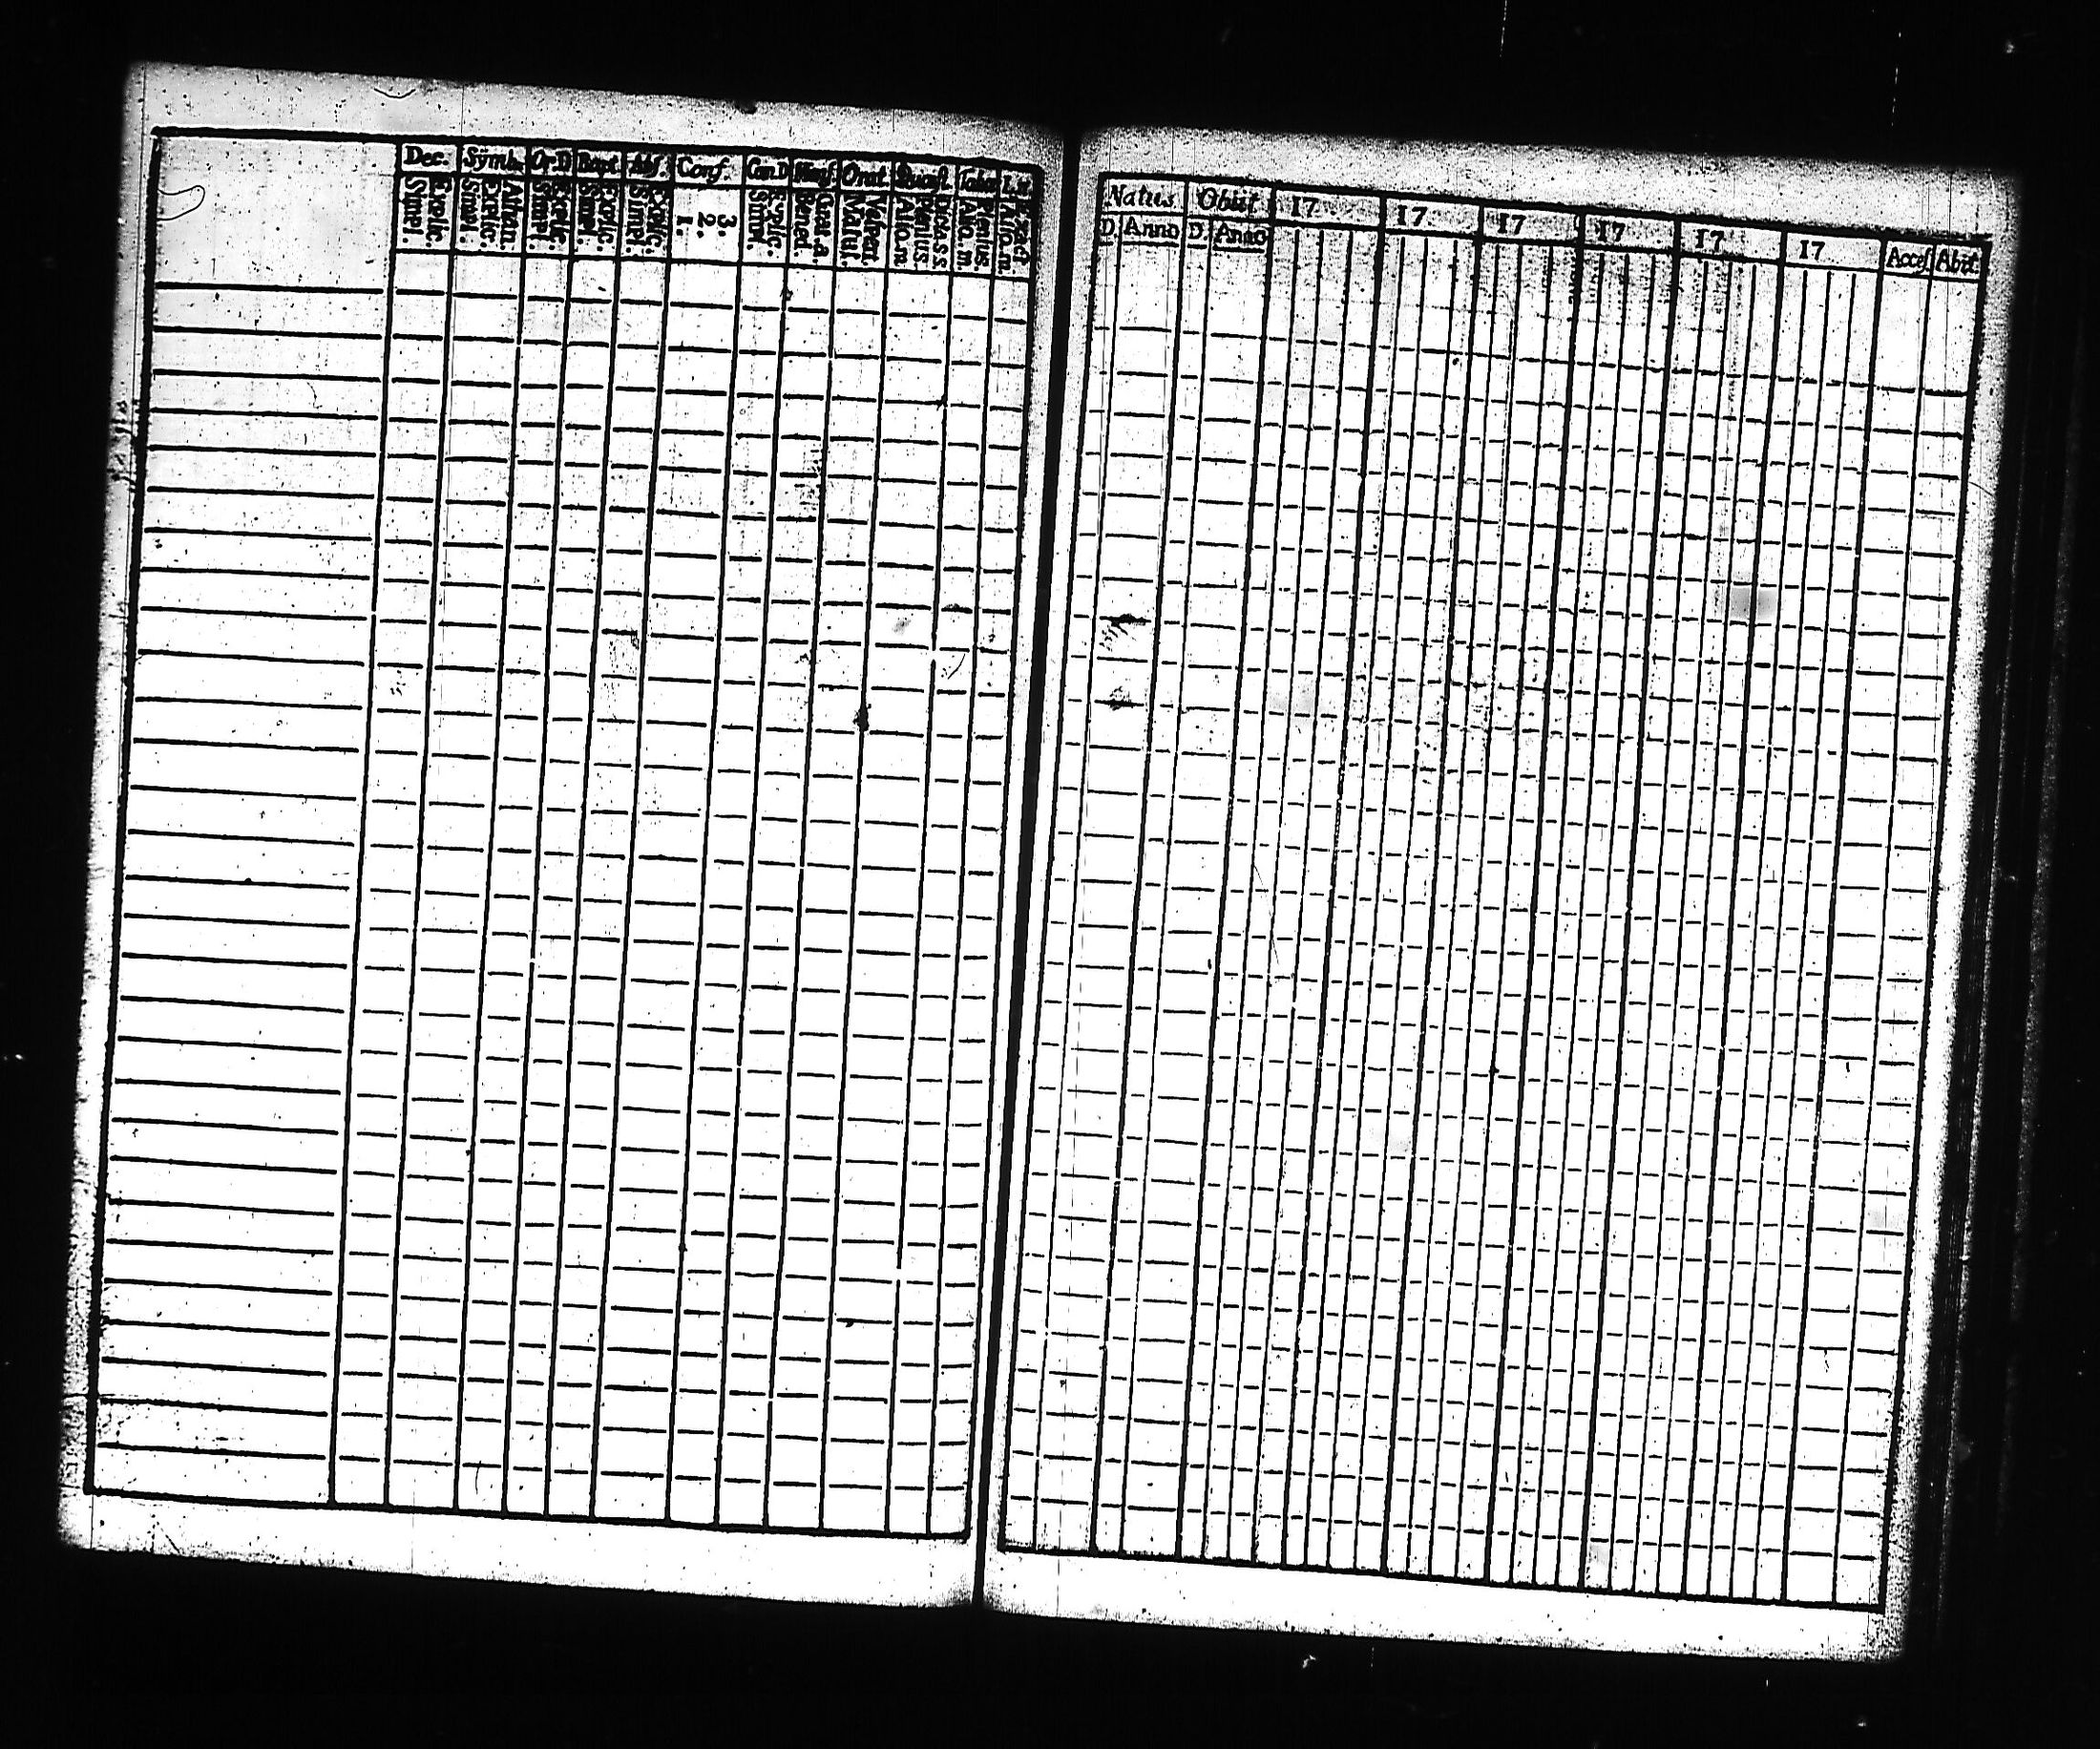 Dec. Symb. Or.D Bapt. Abs. Conf. Cœn.D Mens. Orat. Quæst. Taba Lit.
Explic. Simpl. Athan. Explic. Simpl. Explic. Simpl. Explic. Simpl. Explic. Simpl. 3. 2. 1. Explic. Simpl. Grat. A. Bened. Vespert. Matut. Dict. S.S. Plenius. Aliq.m Plenius. Aliq.m. Exact Aliq.m.
Natus Obiit 17 17 17 17 17 17 Acces Abit
D. Anno D. Anno